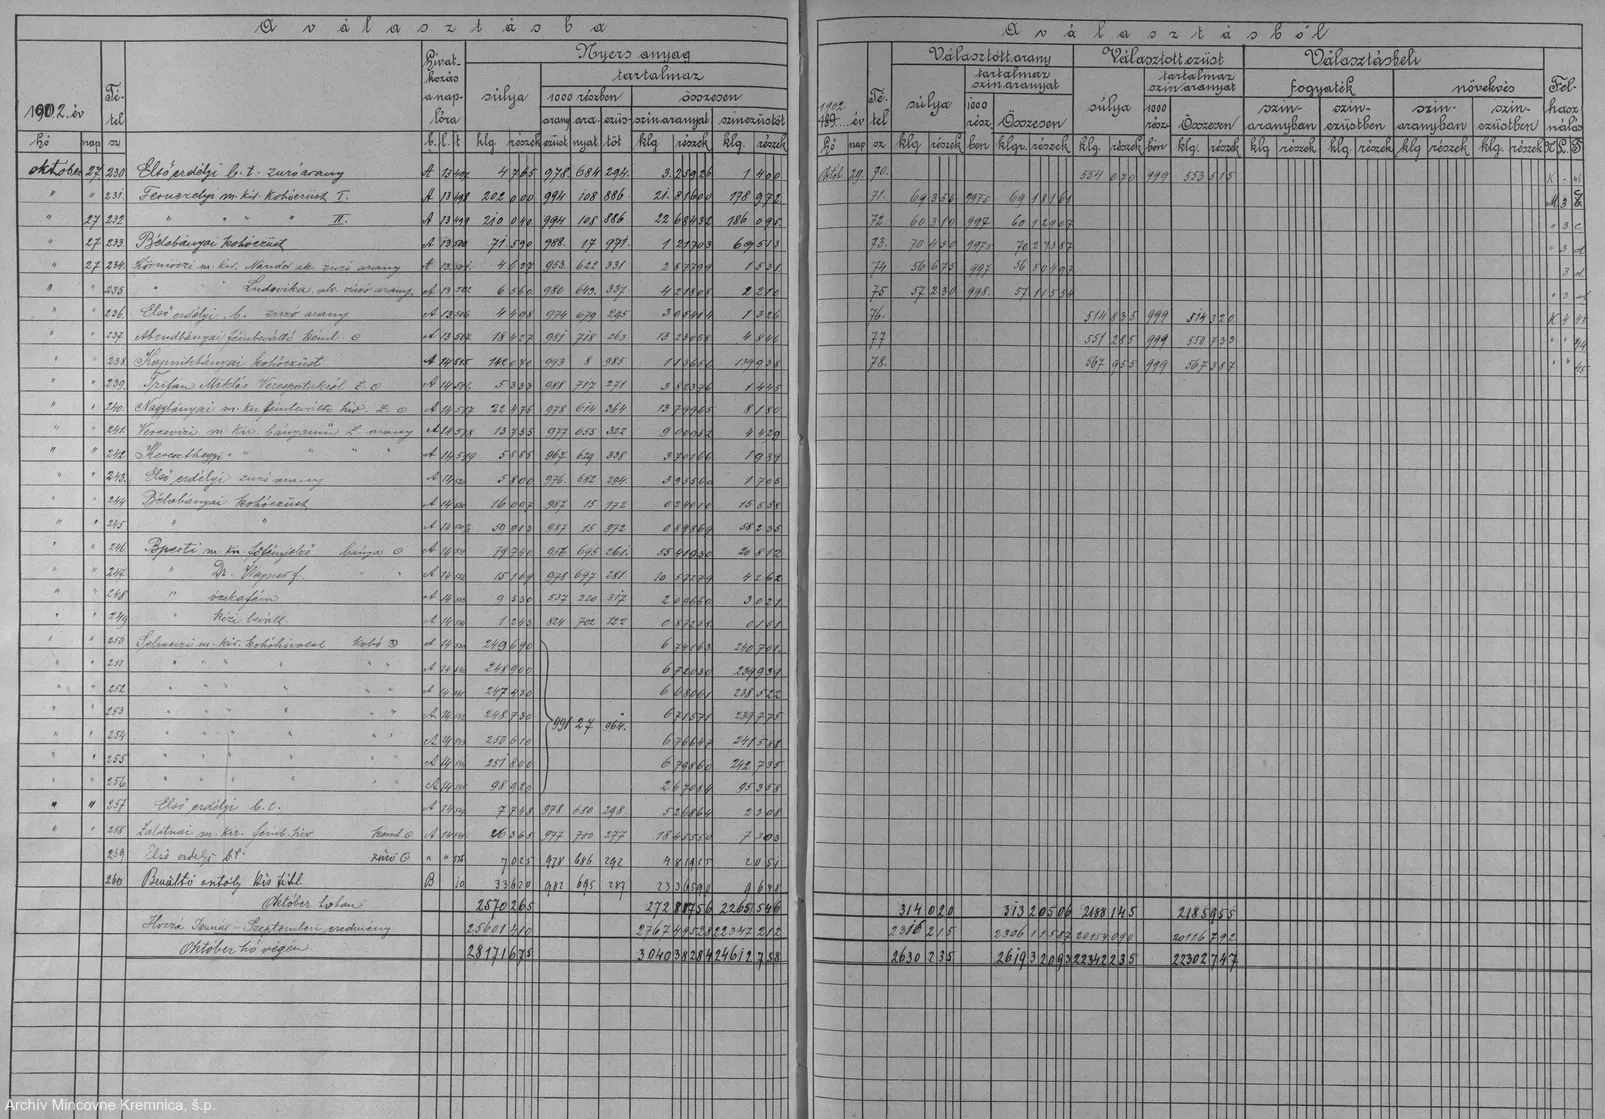 A választásba
1902. év
Tétel
Hivatkozás a naplóra
Nyers anyag
súlya
tartalmaz
1000 részben
összesen
arany ezüst
aranyat
ezüstöt
szinaranyat
szinezüstöt
hó nap sz b. l. t klg részek klg részek klg. részek
október 27. 230 Első erdélyi b. t. zuzóarany A 13 497 4 765 978 684 294 3.25926 1 400
" " 231. Fernezelyi m. kir. kohóezüst I. A 13 498 202 000 994 108 886 21.81600 178 972
" 27 232 " " " II. A 13 499 210 040 994 108 886 22 68432 186 095
" 27 233. Bélabányai kohóezüst A 13 500 71.590 988. 17 971. 1 21703 69 513
" 27 234. Körmöczi m. kir. Nándor ak. zuzó arany A 13 501. 4 627 953 622 331 2 87799 1 531.
" " 235 " " Ludovika ak. zuzó arany. A 13 502 6 560 980 643. 337 4 21808 2 210
" " 236. Első erdélyi b. zuzó arany A 13 506 4 498 974 679 295 3 05414 1 326
" " 237. Abrudbányai fémbeváltó A 13 507 18 427 981 718 263 13 23058 4 846
" " 238. Kapnikbányai kohóezüst A 14 515 142 070 993 8 985 1 13650 139 938
" " 239. Trifan Miklós Verespatakról A 14 516 5 333 988 717 271 3 82376 1 445
" " 240. Nagybányai m. kir. fémbeváltó hiv. A 14 517 22 475 978 614 364 13 79965 8 180
" " 241. Veresvizi m. kir. bányamű Z. arany A 14 518 13 755 977 655 322 9 00952 4 429
" " 242 Kereszthegyi " " " " A 14 519 5 885 967 629 338 3 70166 1 989
" " 243. Első erdélyi zuzó arany A 14 520 5 800 976. 682 294. 3 95560 1 705
" " 244 Bélabányai kohóezüst A 14 16 007 987 15 972 0 24010 15 558
" " 245 " " A 14 59 913 987 15 972 0 89869 58 235
" " 246. Bpesti m. kir. főfémjelző A 14 79 740 956 695 261. 55 41930 20 812
" " 247. " Dr. Wagner f. " " A 14 15 169 978 697 281 10 57279 4 262
" " 248 " A 14 9 530 537 220 317 2 09660 3 021
" " 249 " kézi bevált. A 14 1 243 824 702 122 0 87258 0 151
" " 250 Selmeczi m. kir. kohóhivatal A 14 249 690 6 74163 240 701.
" " 251 " " " " " " A 14 248 900 6 72030 239 939
" " 252 " " " " " " A 14 247 430 6 68061 238 522
" " 253 " " " " " " A 14 248 730 991 27 964. 6 71571 239 775
" " 254 " " " " " " A 14 250 610 6 76647 241 588
" " 255 " " " " " " A 14 251 800 6 79860 242 735
" " 256 " " " " " " A 14 98 920 2 67084 95 358
" " 257 Első erdélyi b. t. A 14 7 748 978 680 298. 5 26864 2 308
" " 258 Zalatnai m. kir. fémb. hiv A 14 26 365 977 700 277 18 45550 7 303
259 Első erdélyi bt. zúzó " " 7 025 978 686 292 4 81915 2 051
260 Beváltó osztály B 10 33 620 982 695 287 23 36590 9 648
Október hóban 2570 265 272 81756 2265 546
Hozzá Január–Szeptemberi eredmény 25601 410 2767 49528 22347 212
Október hó végén 28171 675 3040 38284 24612 758
A választásból
1902 év
Tétel
Választott arany
súlya
tartalmaz szinaranyat
1000 részben
Összesen
Választott ezüst
súlya
tartalmaz szinaranyat
1000 részben
Összesen
Választásbeli
fogyaték
növekvés
szinaranyban
szinezüstben
szinaranyban
szinezüstben
Felhasználás
hó nap sz klg részek klgr. részek klg. részek klg. részek klg részek klg részek klg részek klg. részek
Októb. 29. 70. 554 070 999 553 515 K
71. 69 355 997 5 69 18161 M. 3
72 60 310 997 60 12907 " 3 c
73. 70 450 997 5 70 27387 " 3 d
74 56 675 997 56 50497 3 d
75 57 230 998. 57 11554 " 3
76. 514 835 999 514 320 K 4 43
77 551 285 999 550 733 " " 44
78. 567 955 999 567 387 " " 45
314 020 313 20506 2188 145 2185 955
2316 215 2306 11587 20154 090 20116 792
2630 235 2619 32093 22342 235 22302 747
Archív Mincovne Kremnica, š.p.